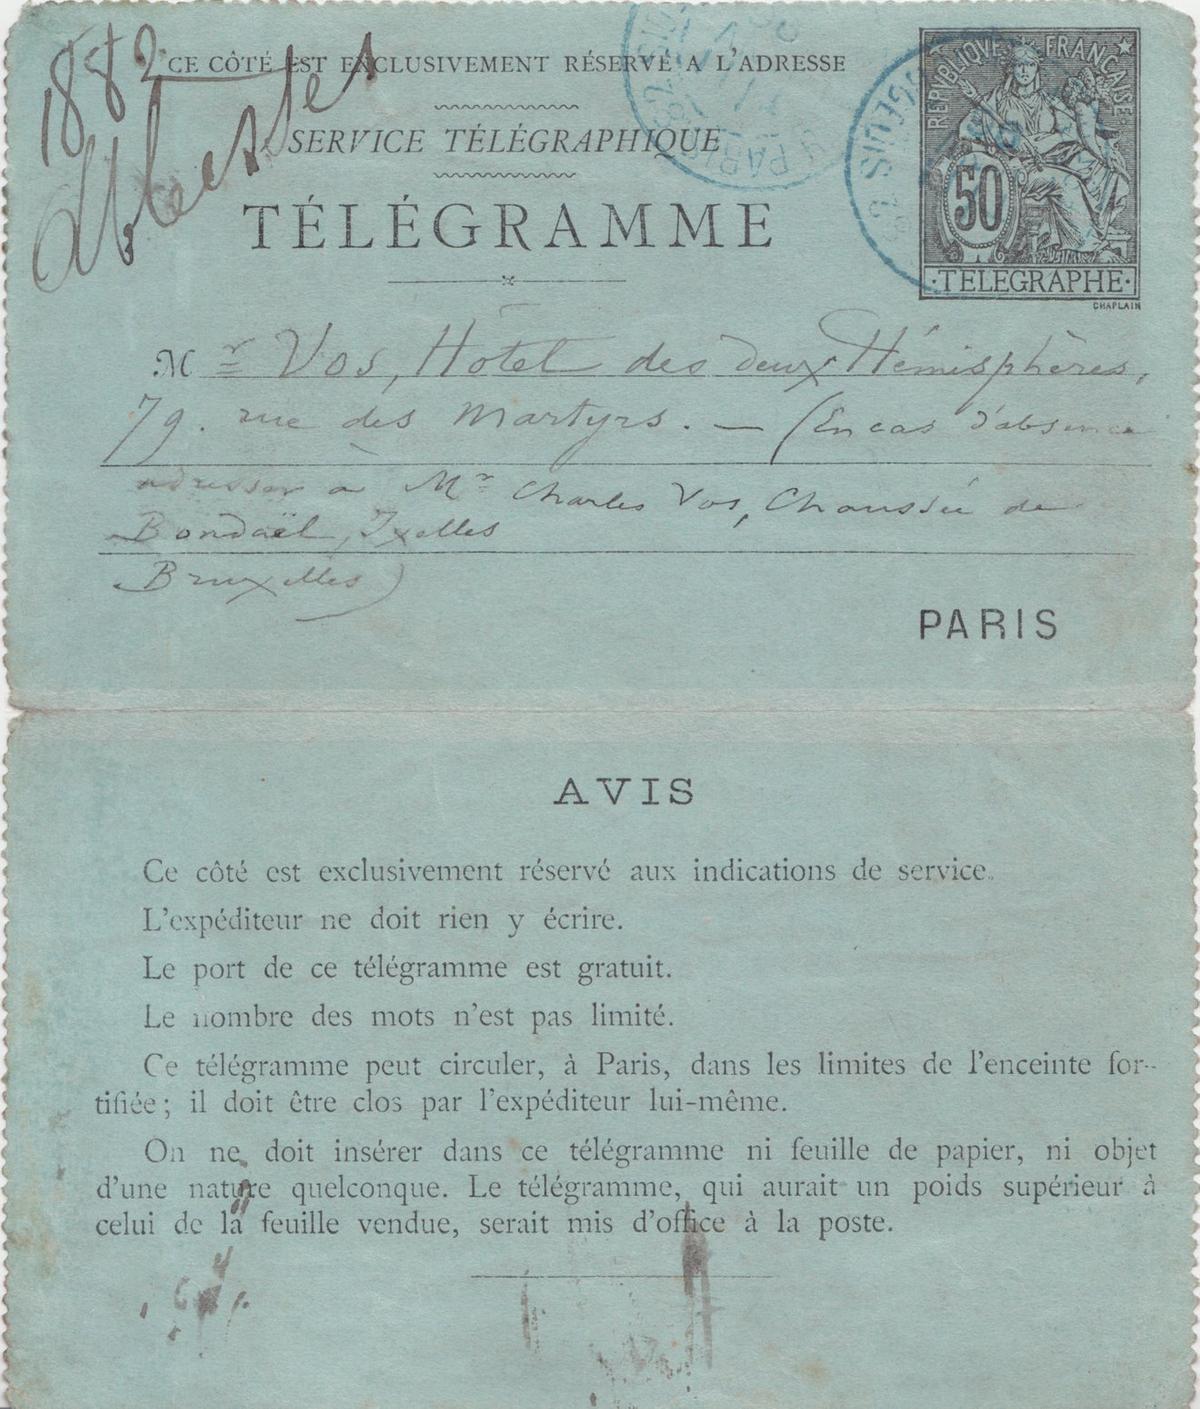 1882
Abbesses
CE CÔTÉ EST EXCLUSIVEMENT RÉSERVÉ A L'ADRESSE
SERVICE TÉLÉGRAPHIQUE
TÉLÉGRAMME
REPUBLIQUE FRANÇAISE
50
TELEGRAPHE
CHAPLAIN
PARIS
Mr Vos, Hôtel des deux Hémisphères,
79. rue des Martyrs. — (En cas d'absence
adresser a Mr Charles Vos, Chaussée de
Bondaël, Ixelles
Bruxelles)
PARIS
AVIS
Ce côté est exclusivement réservé aux indications de service.
L'expéditeur ne doit rien y écrire.
Le port de ce télégramme est gratuit.
Le nombre des mots n'est pas limité.
Ce télégramme peut circuler, à Paris, dans les limites de l'enceinte for-
tifiée; il doit être clos par l'expéditeur lui-même.
On ne doit insérer dans ce télégramme ni feuille de papier, ni objet
d'une nature quelconque. Le télégramme, qui aurait un poids supérieur à
celui de la feuille vendue, serait mis d'office à la poste.